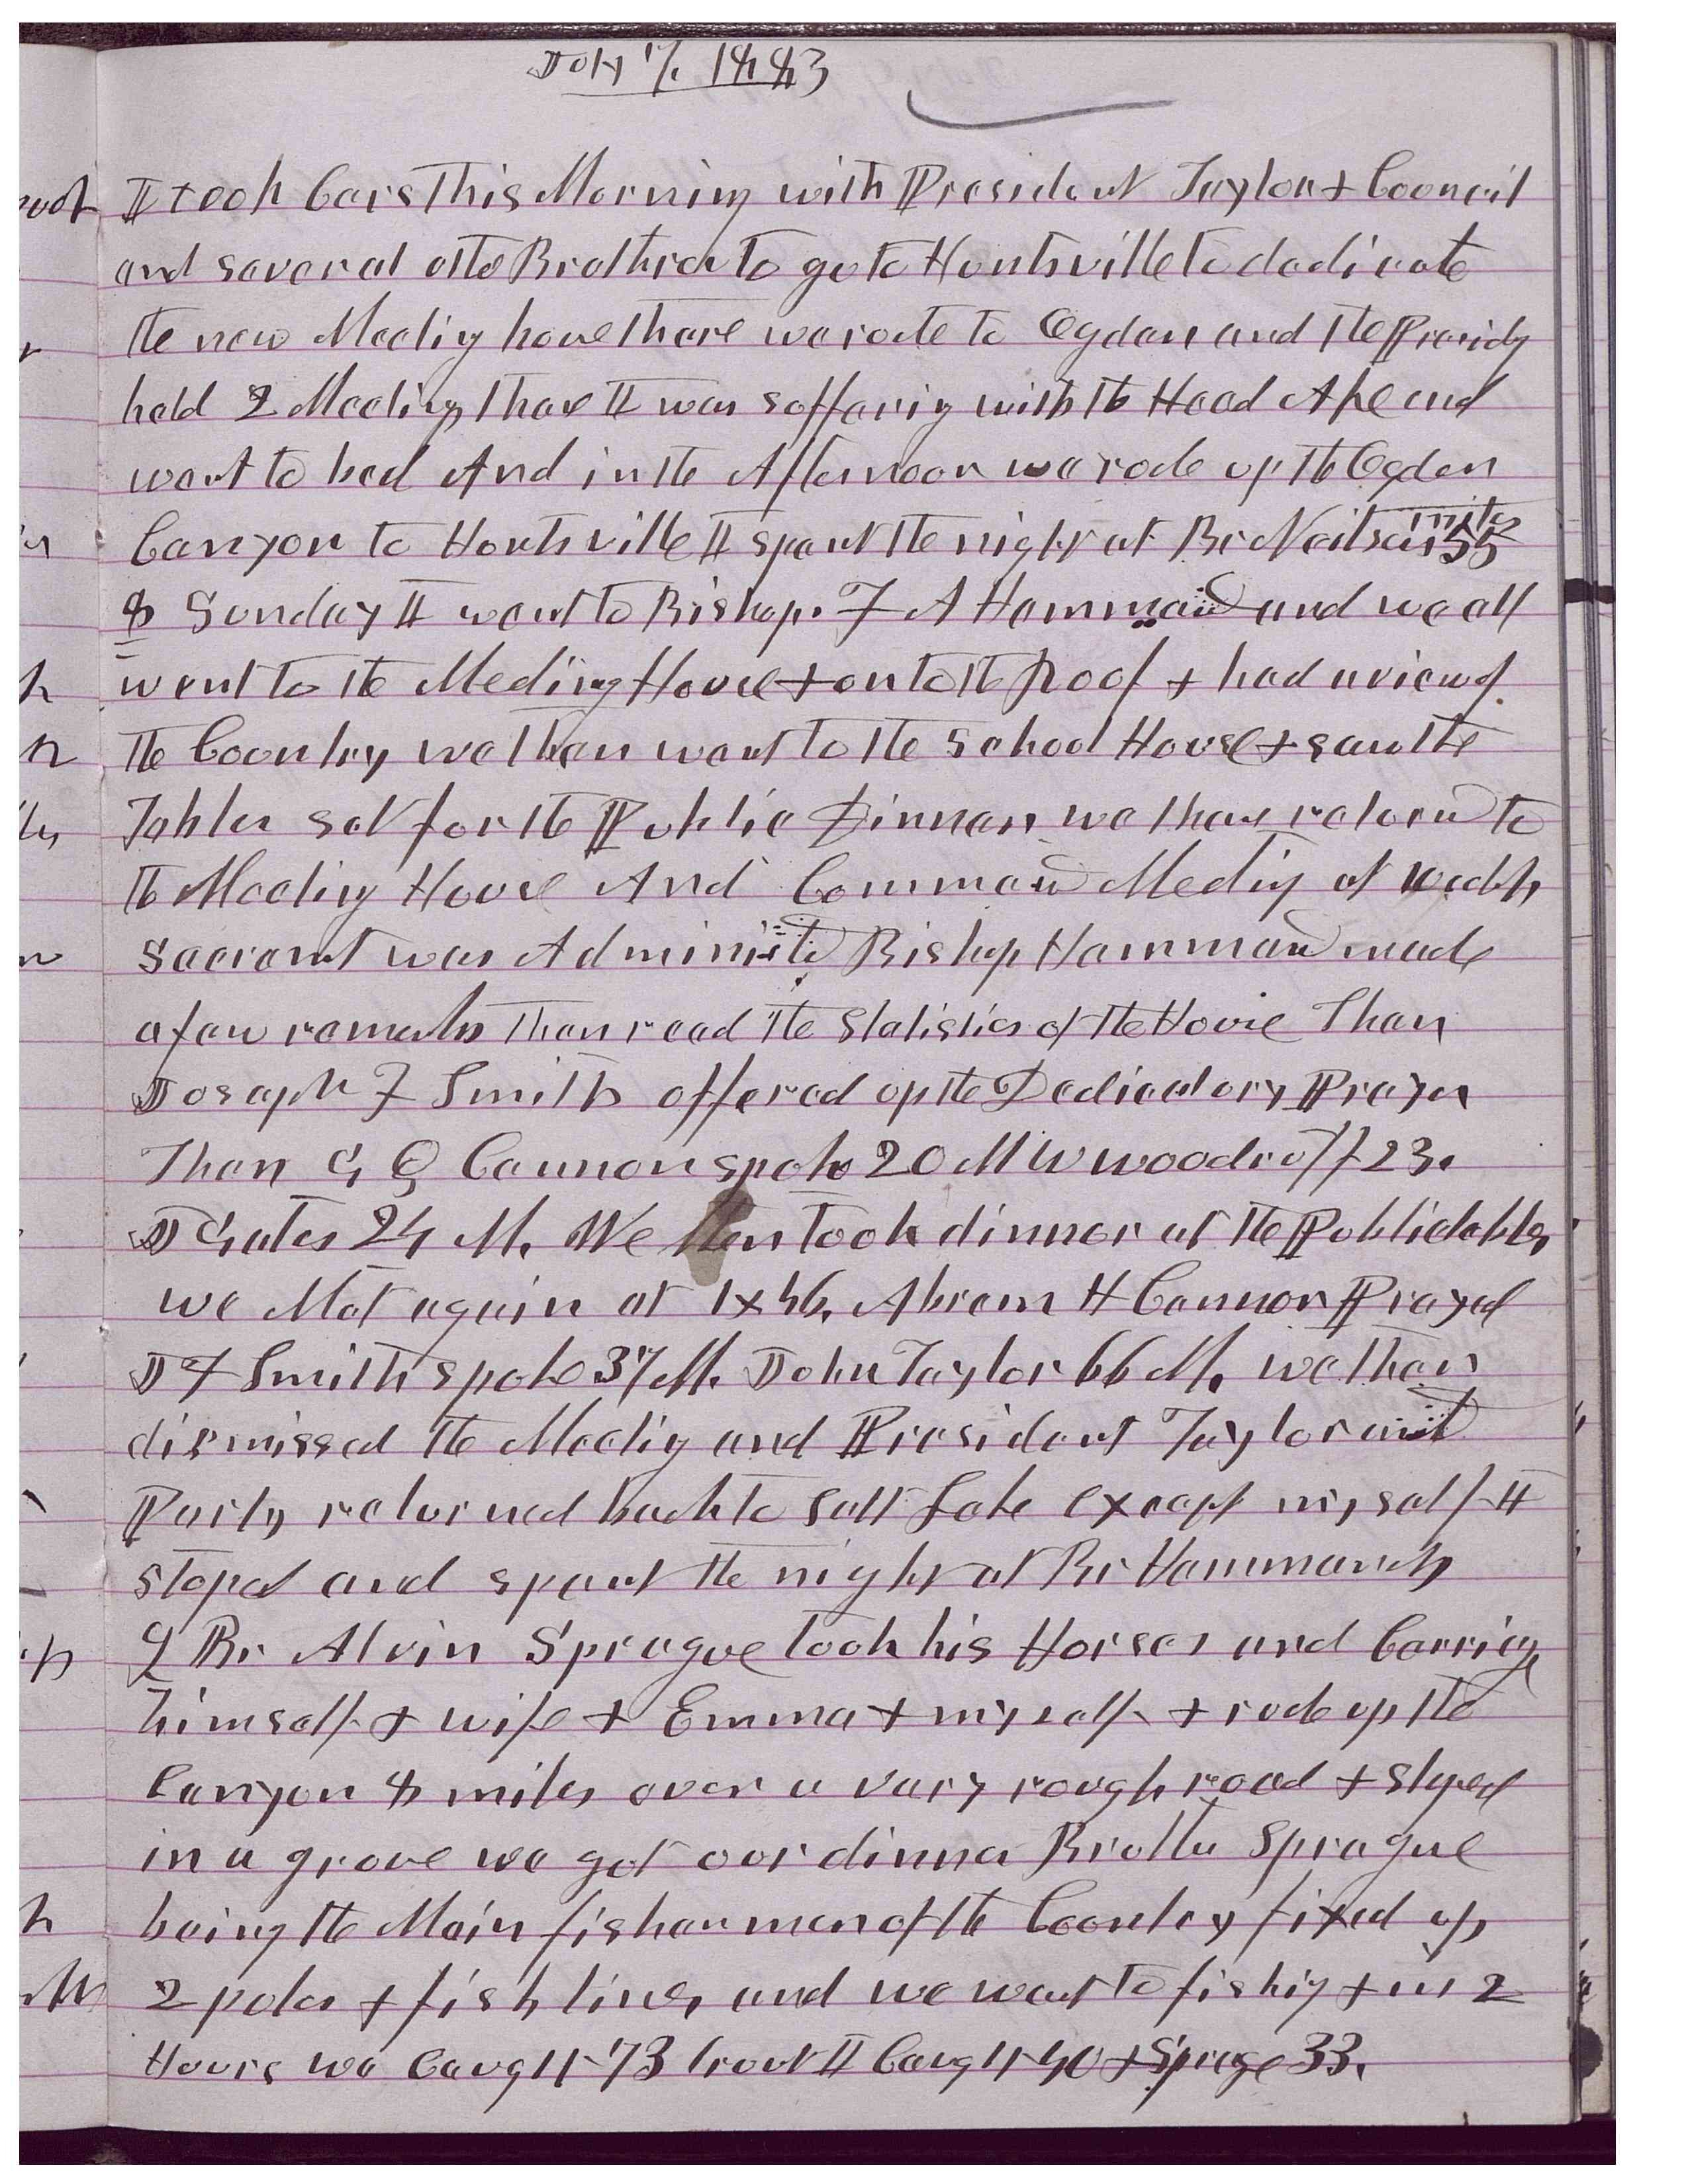 July 7, 1883
I took Cars This Morning with President Taylor + Council
and several othe Brethren to go to Huntsville to dedicate
the new Meeting house there we rode to Ogden and the Presidy
held 2 Meetings there I was suffering with the Head Ake and
went to bed And in the Afternoon we rode up the Ogden
Canyon to Huntsville I spent the night at Br Neilson 55 miles
8 Sunday I went to Bishop F A Hammond and we all
went to the Meeting House + on to the Roof + had a view of
the Country we then went to the School House + saw the
Tables set for the Public Dinner we then returnd to
the Meeting House And Commencd Meeting at which
Sacrament was Administed Bishop Hammond made
a few remarks Then read the Statistics of the House Then
Joseph F Smith offered up the Dedicatory Prayer
Then G Q Cannon spoke 20 M W Woodruff 23.
J Gates 24 M. We then took dinner at the Public tables
we Met again at 1x46. Abram H Cannon Prayed
J F Smith spoke 37 M. John Taylor 66 M. we then
dismissed the Meeting and President Taylor and
Party returned back to Salt Lake except myself I
stoped and spent the night at Br Hammands
9 Br Alvin Sprague took his Horses and Carriag
himself + wife + Emma + myself + rode up the
Canyon 8 miles over a vary rough road + stoped
in a grove we got our dinner Brother Sprague
being the Main fisherman of the Country fixed up
2 poles + fish lines and we went to fishing + in 2
Hours we Caught 73 trout I Caught 40 + Sprage 33.